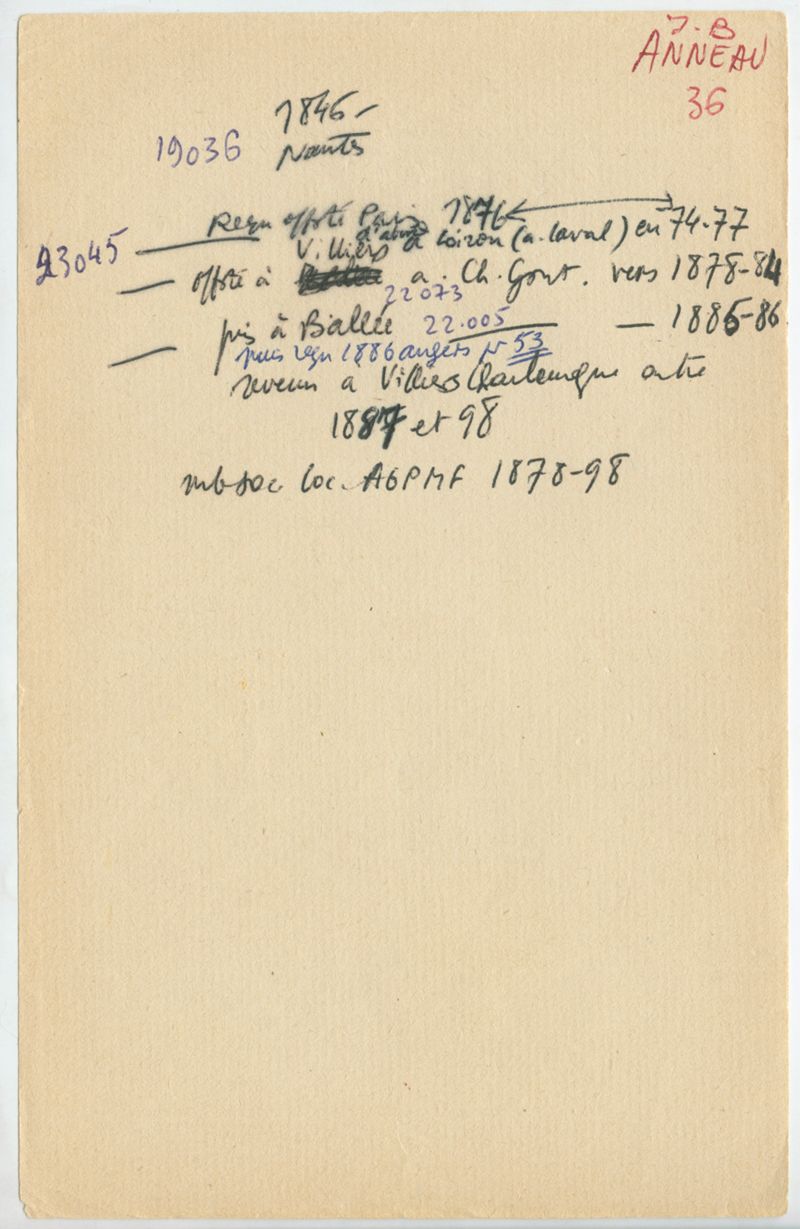 J.B
ANNEAU
36
1846-
19036 Nantes
Reçu Paris 1876
d'abord à Loiron (a. Laval) en 74-77
23045
Villiers
à a. Ch. Gont. vers 1878-84
22073
puis à Ballée 22.005 — 1885-86
puis reçu 1886 angers pr 53
revenu a Villiers Charlemagne entre
1887 et 98
mb soc loc. AGPMF 1878-98